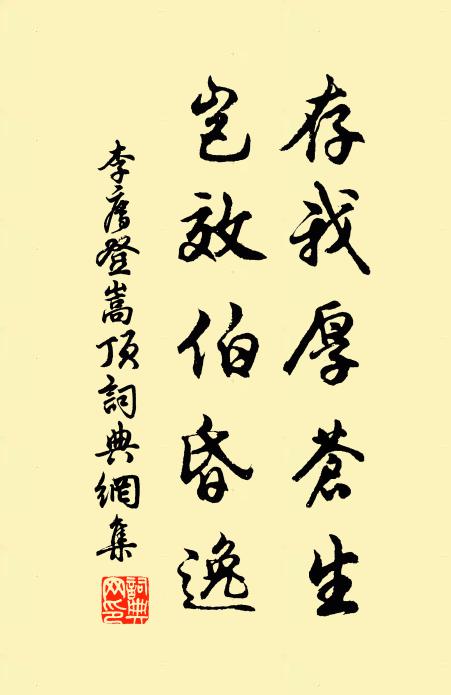 存我厚蒼生
豈效伯昏逸
李廌登嵩頂詞典網集
詞典网印